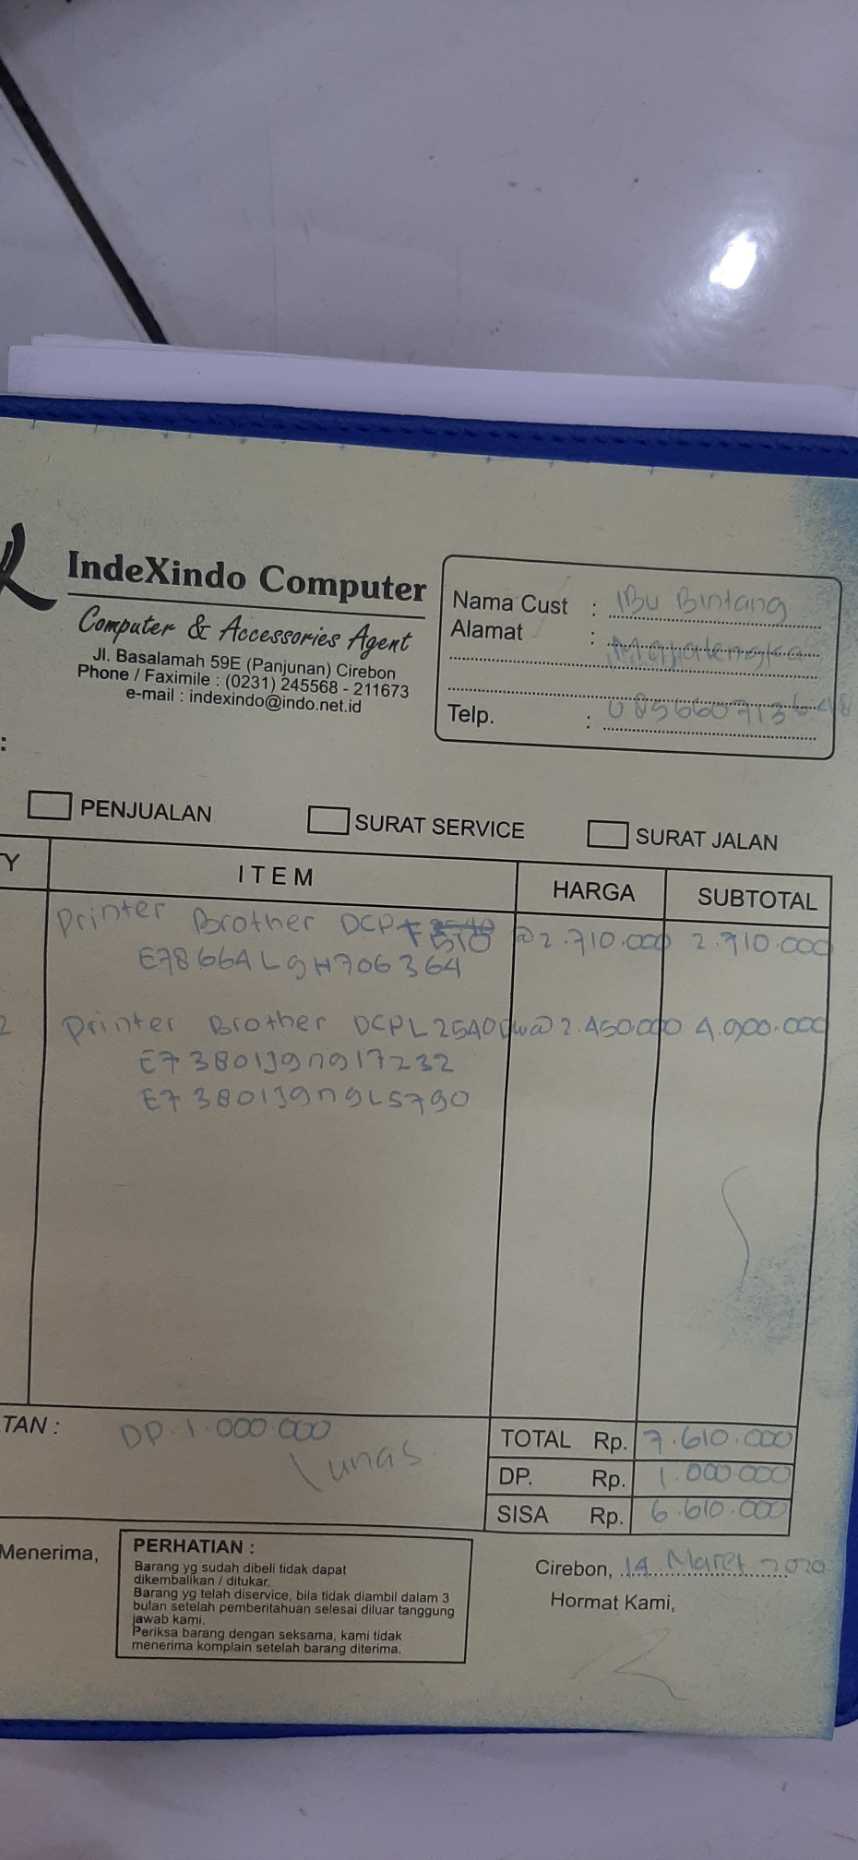 IndeXindo Computer
Computer & Accessories Agent
Jl. Basalamah 59E (Panjunan) Cirebon
Phone / Faximile : (0231) 245568 - 211673
e-mail : indexindo@indo.net.id
Nama Cust : IBu Bintang
Alamat : Majalengka
Telp. : 085660713648
:
PENJUALAN SURAT SERVICE SURAT JALAN
TY ITEM HARGA SUBTOTAL
Printer Brother DCP T @2.710.000 2.710.000
E78664L9H706364
2 Printer Brother DCPL2540dw @2.450.000 4.900.000
E73801J9N917232
E73801J9N9L5790
TAN : DP. 1.000.000
Lunas
TOTAL Rp. 7.610.000
DP. Rp. 1.000.000
SISA Rp. 6.610.000
Menerima,
PERHATIAN :
Barang yg sudah dibeli tidak dapat
dikembalikan / ditukar.
Barang yg telah diservice, bila tidak diambil dalam 3
bulan setelah pemberitahuan selesai diluar tanggung
jawab kami.
Periksa barang dengan seksama, kami tidak
menerima komplain setelah barang diterima.
Cirebon, 14 Maret 2020
Hormat Kami,